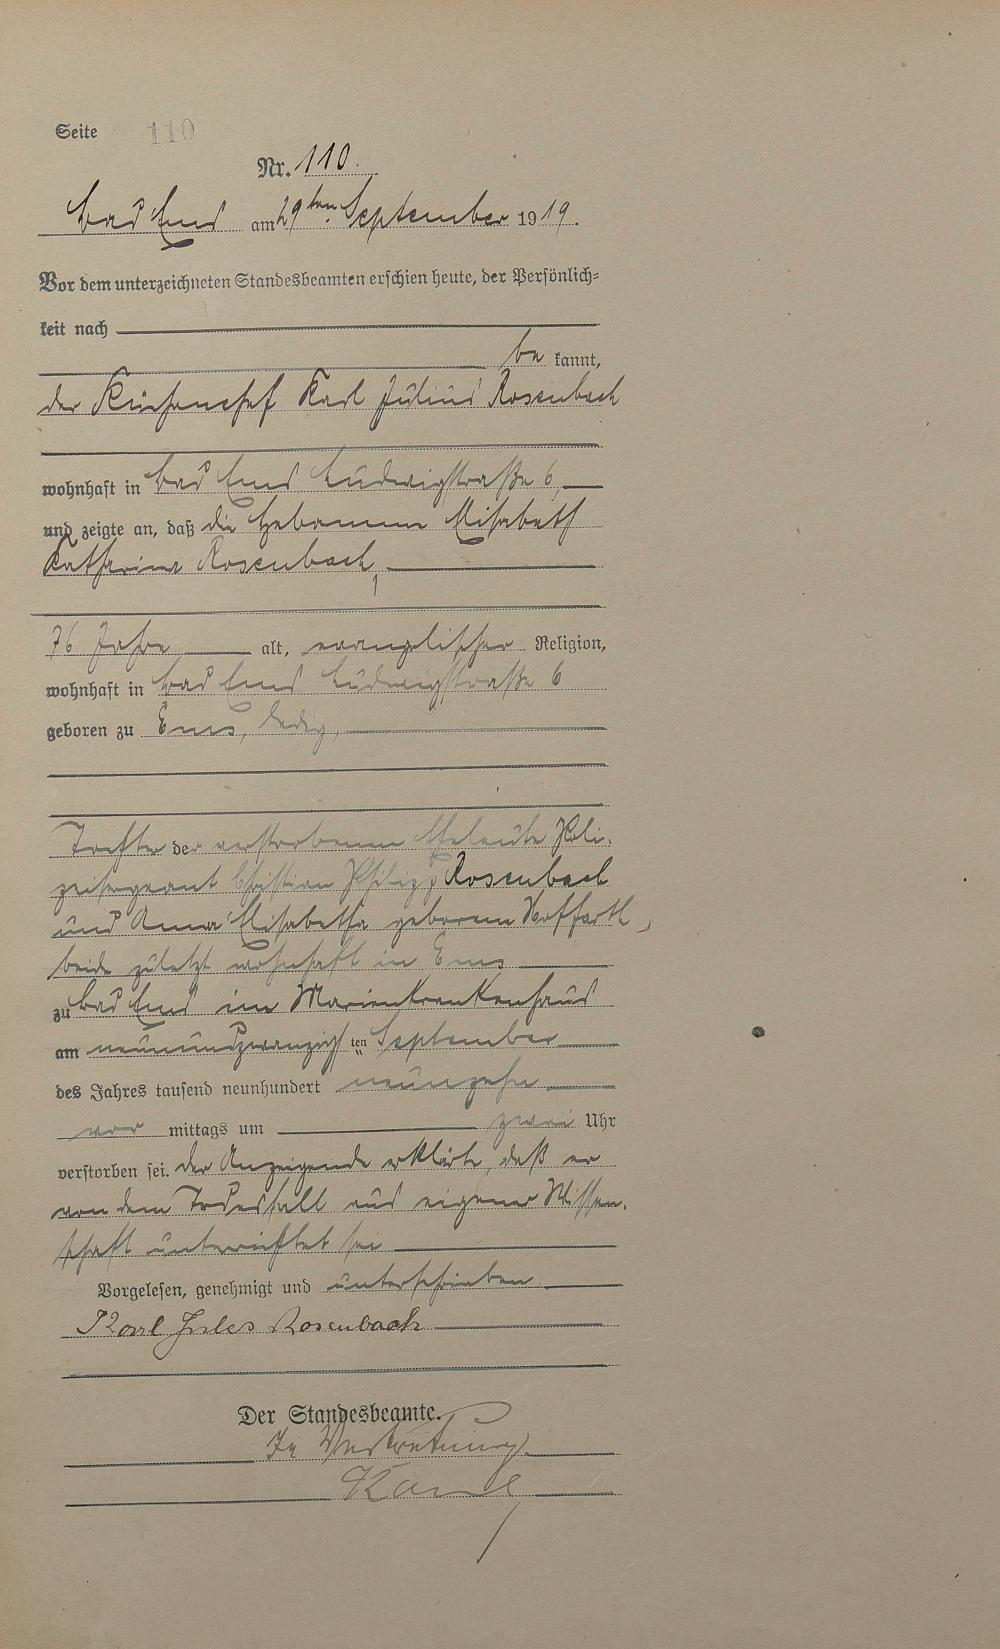 Seite 110
Nr. 110.
Bad Ems am 29ten September 1919.
Vor dem unterzeichneten Standesbeamten erschien heute, der Persönlich-
keit nach
be kannt,
der Küchenchef Karl Julius Rosenbach
wohnhaft in Bad Ems Ludwigstraße 6,
und zeigte an, daß die Hebamme Elisabeth
Katharina Rosenbach,
76 Jahre alt, evangelischer Religion,
wohnhaft in Bad Ems Ludwigstraße 6
geboren zu Ems, ledig,
Tochter der verstorbenen Eheleute Poli-
zeisergeant Christian Philipp Rosenbach
und Anna Elisabetha geborene Noffarth,
beide zuletzt wohnhaft in Ems
zu Bad Ems im Marienkrankenhaus
am neunundzwanzigsten September
des Jahres tausend neunhundert neunzehn
vor mittags um zwei Uhr
verstorben sei. Der Anzeigende erklärte, daß er
von dem Todesfall aus eigener Wissen-
schaft unterrichtet sei
Vorgelesen, genehmigt und unterschrieben
Karl Jules Rosenbach
Der Standesbeamte.
In Vertretung